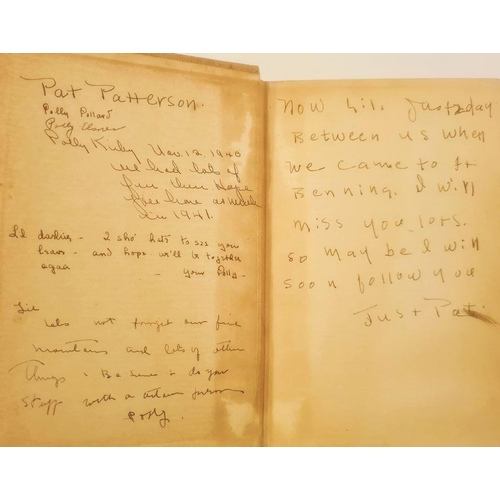 Pat Patterson.
Polly Pollard
Polly
Polly Kirby Nov. 12 1940
we had lots of
fun then Hope
you have as much
in 1941.
Lil darlin - I sho' hate to see you
leave - and hope we'll be together
agaa - your Polly -
Lil
lets not forget our five
mountains and lots of other
Things. Be sure & do your
stuff with a certain person
Polly.
Now Lil. Just today
Between us when
we came to Ft
Benning. I will
miss you lots.
so may be I will
soon follow you
Just Pat.